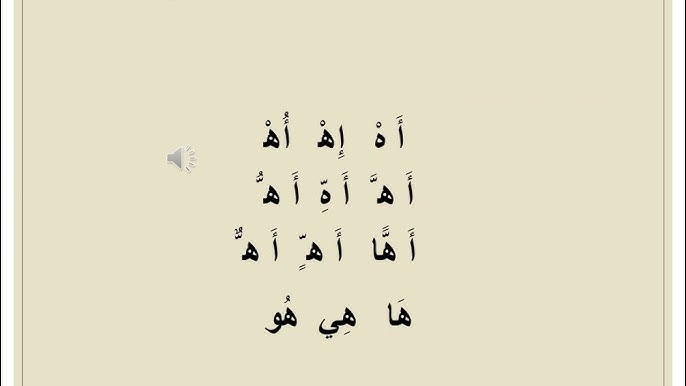 أَهْ إِهْ أُهْ
أَهَّ أَهِّ أَهُّ
أَهًّا أَهٍّ أَهٌّ
هَا هِي هُو